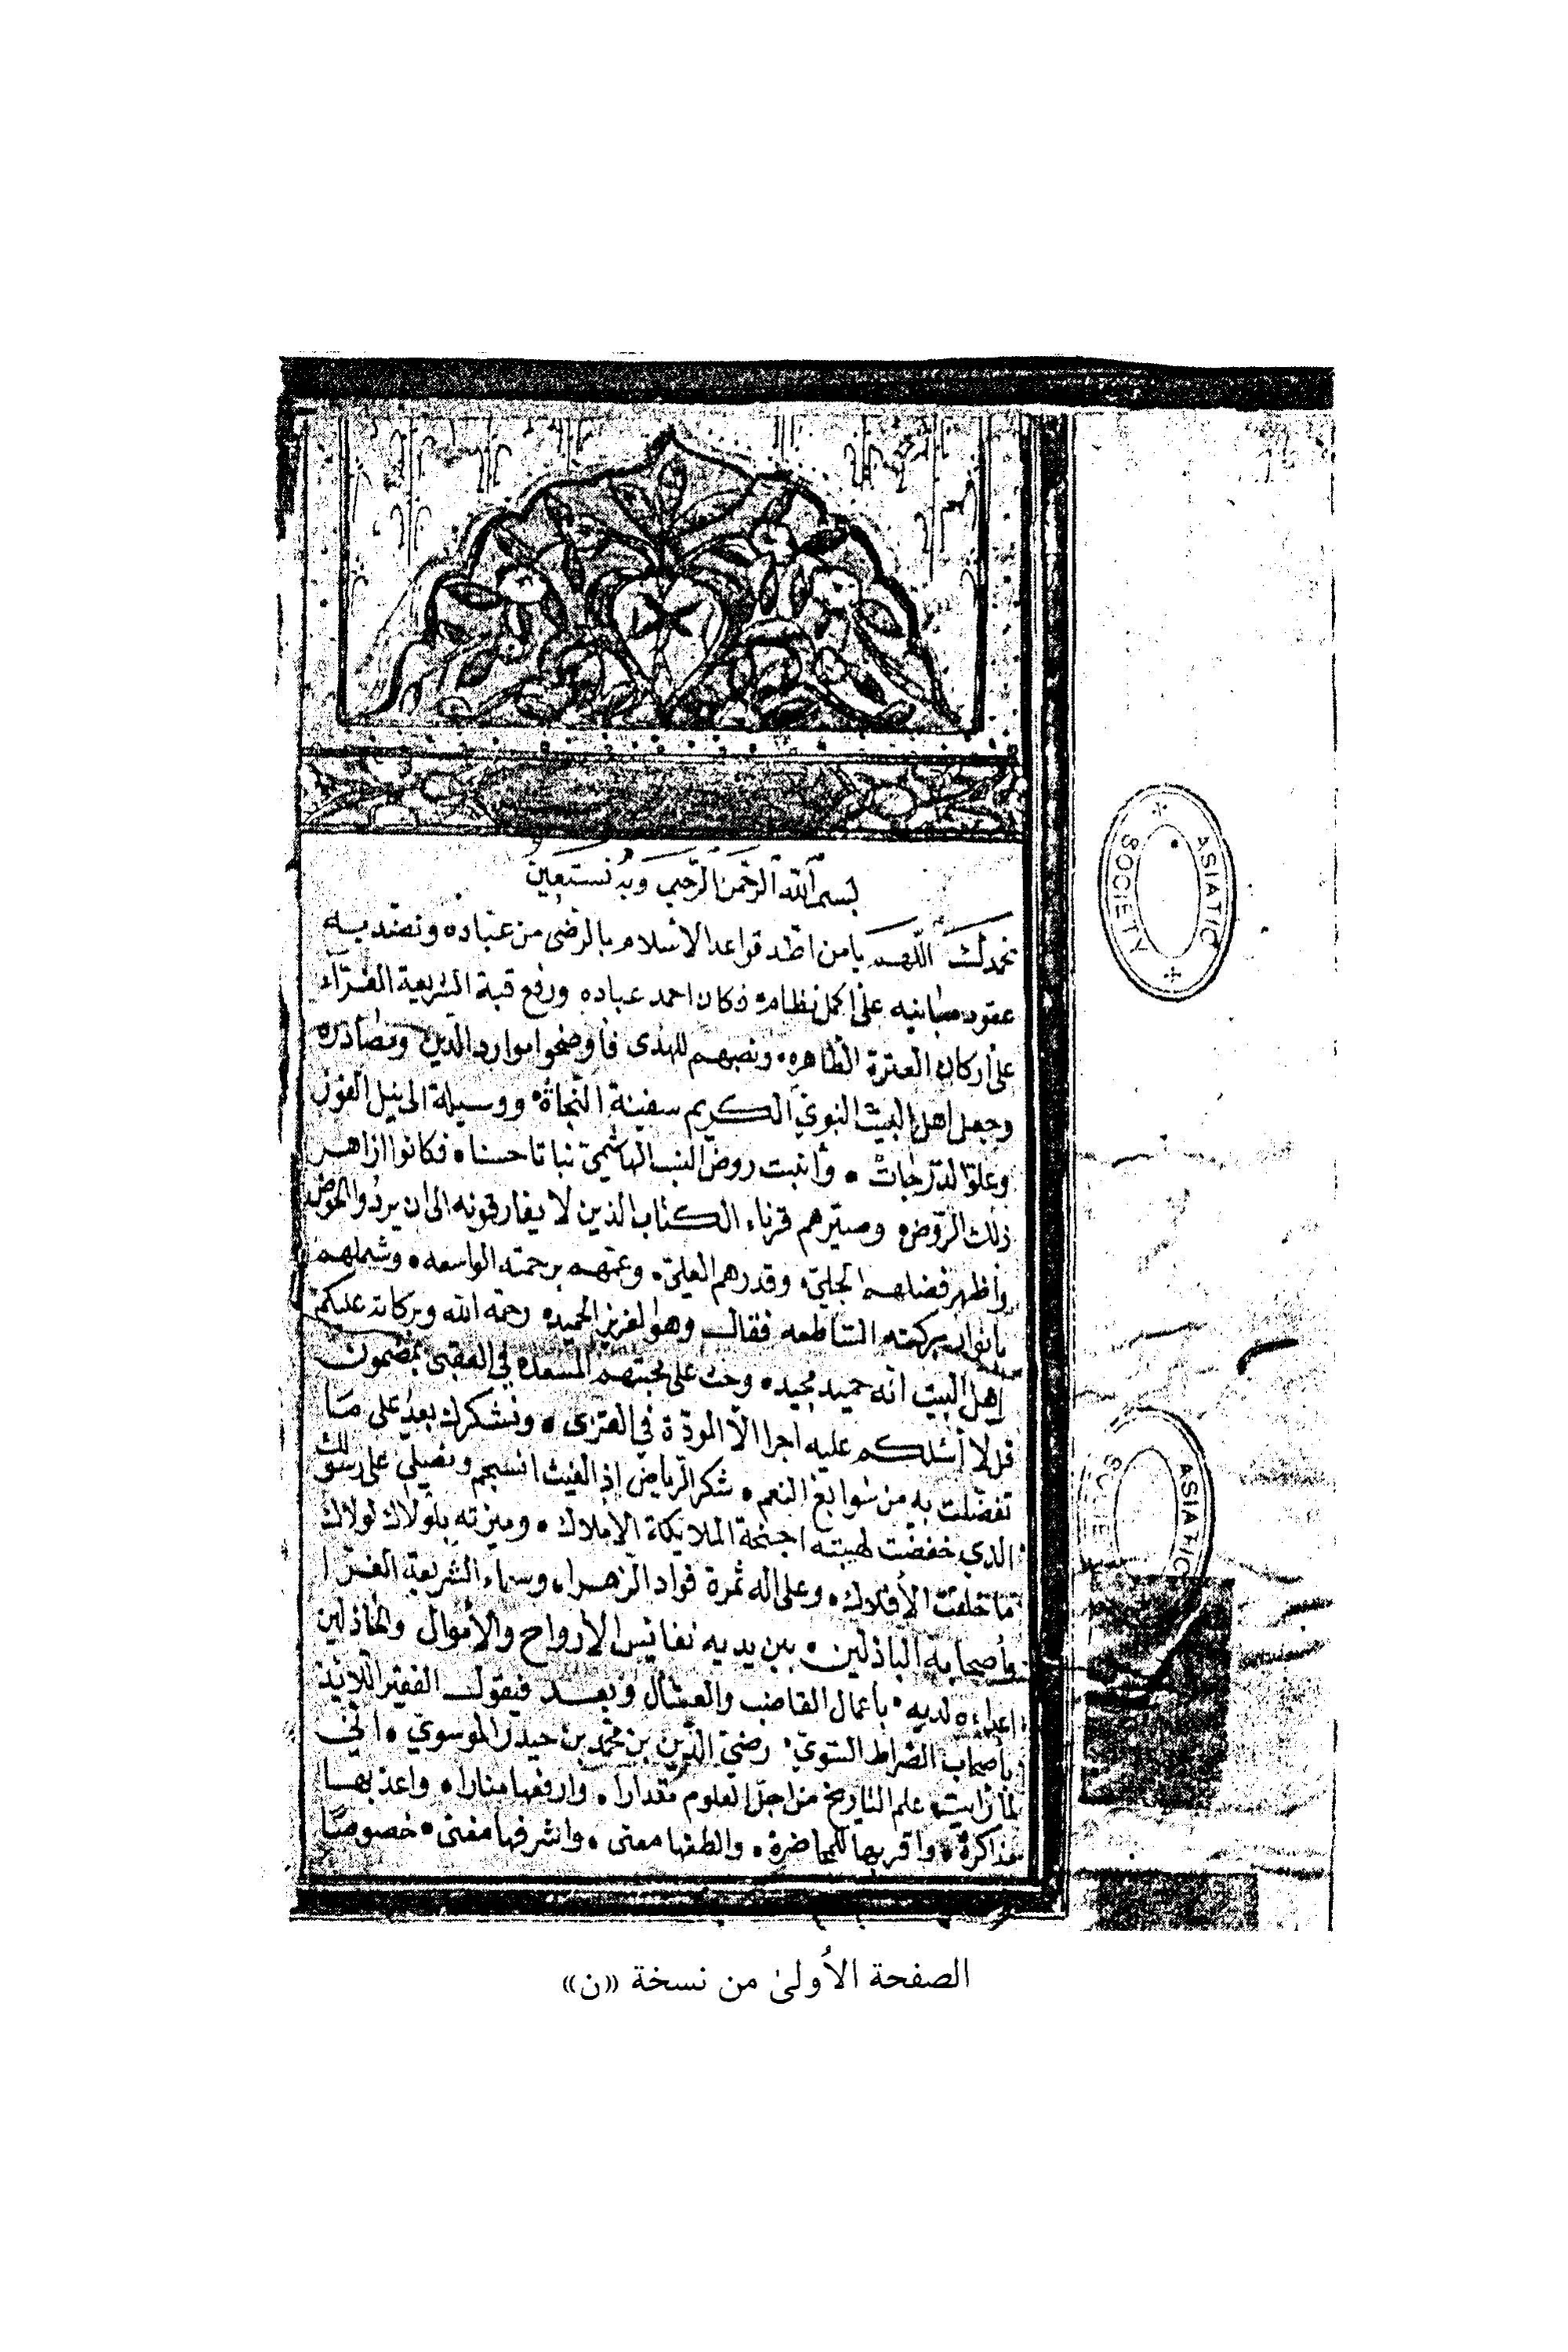 بسم الله الرحمن الرحيم وبه نستعين
نحمدك اللهم يا من اطد قواعد الاسلام بالرضى من عباده ونضد به
عقود مبانيه على اكمل نظام فكان احمد عباده ورفع قبة الشريعة الغرّآء
على اركان العترة الطاهره ونصبهم للهدى فأوضحوا موارد الدين ومصادره
وجعل اهل البيت النبوي الكريم سفينة النجاة ووسيلة الى نيل الفوز
وعلو الدرجات وأنبت روض النسب الهاشمي نباتا حسنا فكانوا ازاهر
ذلك الروض وصيّرهم قرناء الكتاب الذين لا يفارقونه الى ان يردوا الحوض
وأظهر فضلهم الجليّ وقدرهم العليّ وعمّهم برحمته الواسعه وشملهم
بانوار بركته الساطعه فقال وهو العزيز الحميد رحمة الله وبركاته عليكم
اهل البيت انه حميد مجيد وحث على محبتهم المسعده في العقبى بمضمون
قل لا اسئلكم عليه اجرا الا المودّة في القربى ونشكرك بعد على ما
تفضّلت به من سوابغ النعم شكر الرياض اذ الغيث انسجم ونصلي على رسولك
الذي خفضت لهيبته اجنحة الملايكة الاملاك وميزته بلولاك لولاك
ما خلقت الأفلاك وعلى اله ثمرة فواد الزهراء وسماء الشريعة الغرّا
وأصحابه الباذلين بين يديه نفائس الارواح والأموال والخاذلين
اعداءه لديه باعمال القاضب والعسّال وبعد فيقول الفقير اللائذ
باصحاب الصراط السّويّ رضيّ الدّين بن محمّد بن حيدر الموسوي اني
لما رأيت علم التاريخ من اجلّ العلوم مقدارا وارفعها منارا واعذبها
مذاكرة واقربها للمحاضرة والطفها معنى واشرفها مغنى خصوصًا
ASIATIC SOCIETY
ASIATIC
الصفحة الأُولىٰ من نسخة «ن»